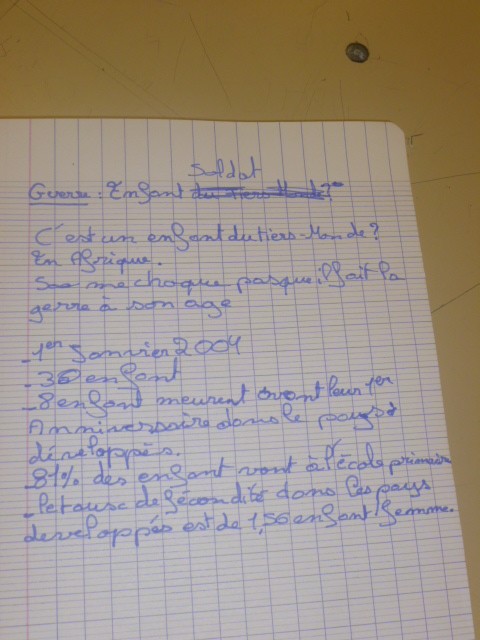 Soldat
Guerre : Enfant du tiers Monde ?
C'est un enfant du tiers-Monde ?
En Afrique.
Sa me choque pasque il fait la
gerre à son age
- 1er Janvier 2004
- 36 enfant
- 8 enfant meurent avant leur 1er
Anniversaire dans le pays
développés.
- 81% des enfant vont à l'école primaire
- le taux de fécondité dans les pays
developpés est de 1,56 enfant femme.